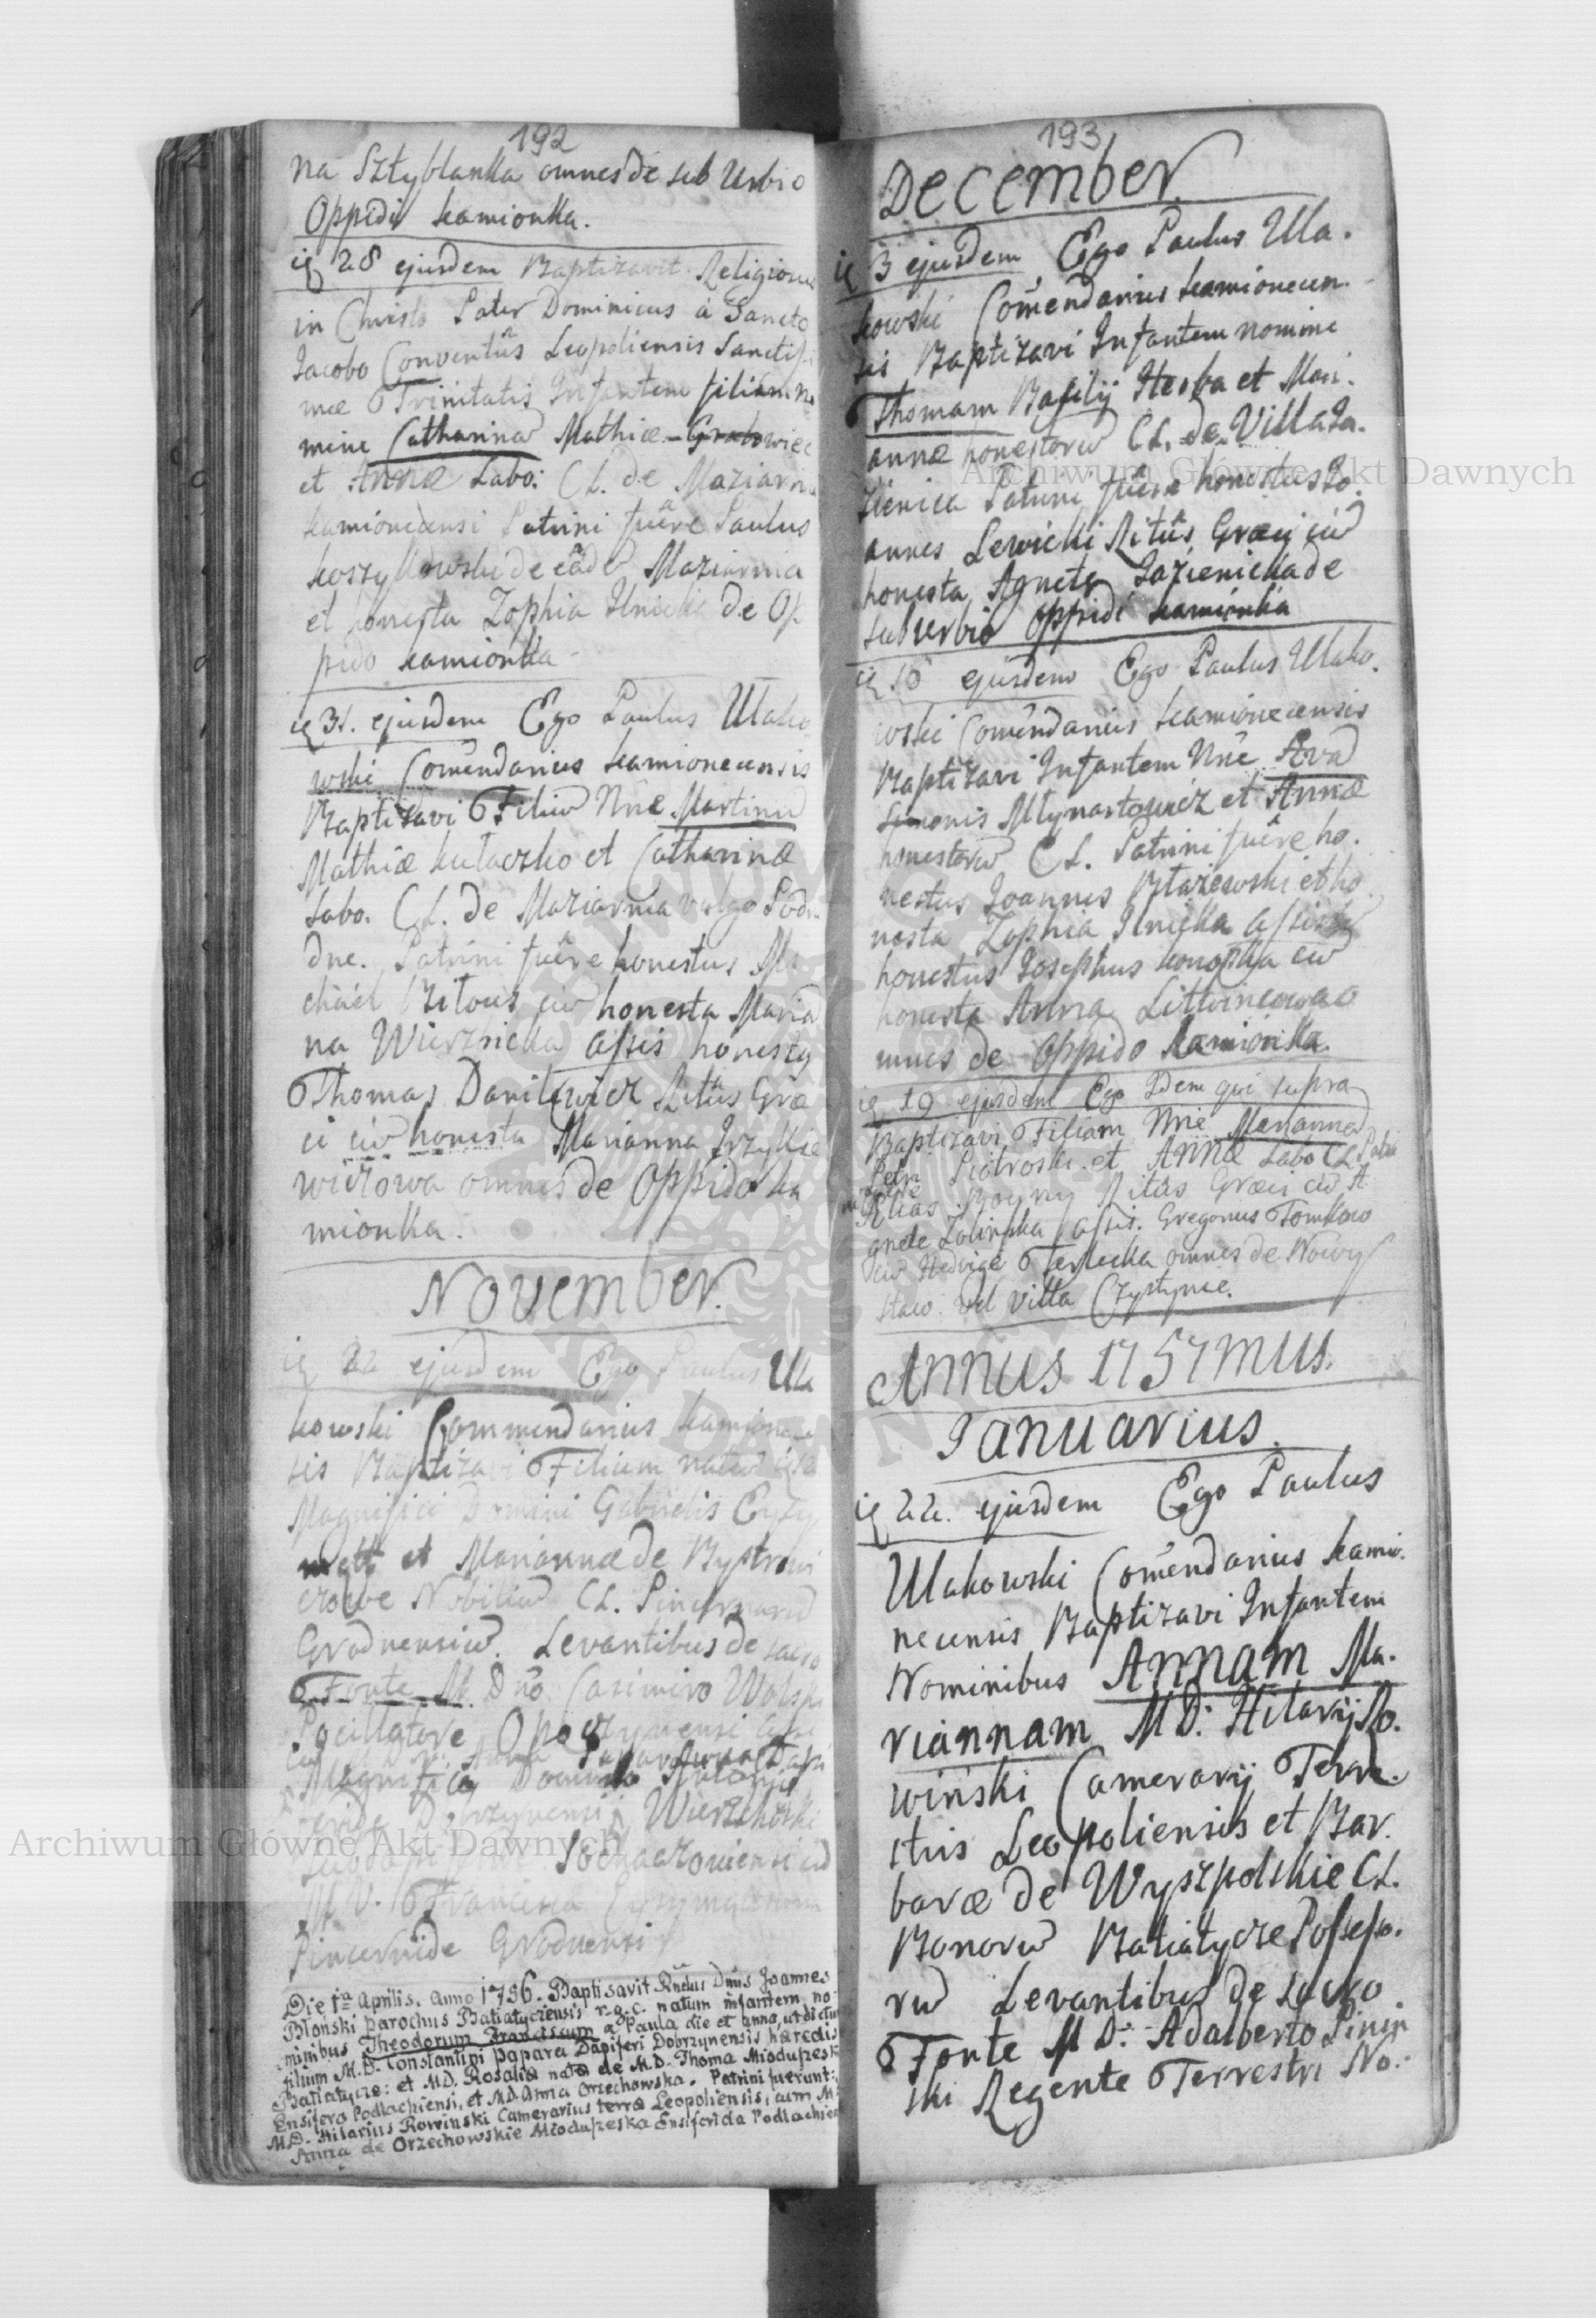 192
na Sztyblanka omnes de sub Urbio
Oppidi Kamionka.
28 ejusdem Baptizavit Religiosus
in Christo Pater Dominicus à Sancto
Jacobo Conventûs Leopoliensis Sanctissi
mæ Trinitatis Infantem filiam no
mine Catharinã Mathiæ Grabowiec
et Annæ Labo: C.L. de Maziarnia
Kamionecensi Patrini fuêre Paulus
Koszykowski de eâdẽ Maziarnia
et honesta Zophia Ilnicka de Op
pido Kamionka
31. ejusdem Ego Paulus Ulako
wski Comendarius Kamionecensis
Baptizavi Filiũ Nne Martinũ
Mathiæ Kułaczko et Catharinæ
Labo. C.L. de Maziarnia vulgo
dne. Patrini fuêre honestus Mi
chael Bilous cũ honesta Maria
na Wierzbicka assis honesty
Thomas Danilewicz Ritûs Græ
ci cũ honesta Marianna Jrzykie
wiczowa omnes de Oppido Ka
mionka.
November.
22 ejusdem Ego Paulus Ula
kowski Commendarius Kamionecen
sis Baptizavi Filium natũ
Magnifici Domini Gabrielis
et Mariannæ de Bystrzoni
Nobiliũ C.L. Pincernarũ
Grodnensiũ. Levantibus de sacro
Fonte M. Dño Casimiro Wolski
Pocillatore Opoczynensi
Anna
Magnifico Domino Antonio
Wierzchoski
Sochaczowiensi cũ
M.D. Francisca
Pincernide Grodnensi
Die 1ma Aprilis. Anno 1756. Baptisavit Rndus Dnus Joannes
Błonski parochus Batiatyczensis r.g.c. natum infantem no-
minibus Theodorum Franciscum a Paula die et anno, ut dictum
filium M.D. Constantini Papara Dapiferi Dobrzynensis hæredis
Batiatycze: et M.D. Rosalia nata de M.D. Thoma Miodupesk
Ensifero Podlachiensi, et M.D. Anna Orzechowska. Patrini fuerunt:
M.D. Hilarius Rowinski Camerarius terræ Leopoliensis, cum M.
Anna de Orzechowskie Miodupeska Ensiferida Podlachien
193
December
3 ejusdem Ego Paulus Ula.
kowski Comendarius Kamionecen.
sis Baptizavi Infantem nomine
Thomam Basilij Hesba et Mari.
annæ honestorũ C.L. de Villa Ja.
zienica Patrini fuêre honestus Jo.
annes Lewicki Ritûs Græci cũ
honesta Agnete Jazienicka de
suburbio Oppidi Kamionka
10 ejusdem Ego Paulus Ulako.
wski Comendarius Kamionecensis
Baptizavi Infantem Nne Evã
Simonis Młynartowicz et Annæ
honestorũ C.L. Patrini fuêre ho.
nestus Joannes Błażewski et ho
nesta Zophia Ilnicka assisty
honestus Josephus Konopka cũ
honesta Anna Littwincowa o
mnes de Oppido Kamionka.
19 ejusdem Ego Idem qui supra
Baptizavi Filiam Nne Mariannã
Petri Piotroski et Annæ Labo C.L. Patri
ni fuêre
Elias Boyny Ritûs Græci cũ A
gnete Zolinska assis. Gregorius Tomkow
cũ Hedvige Terlecka omnes de Nowy
staw vel villa Czystynie.
Annus 1757mus.
Januarius.
22. ejusdem Ego Paulus
Ulakowski Comendarius Kamio.
necensis Baptizavi Infantem
Nominibus Annam Ma.
riannam M.D: Hilarij Ro.
wiński Camerarij Terre.
stris Leopoliensis et Bar.
baræ de Wyszpolskie C.L.
Bonorũ Batiatycze Possesso.
rũ Levantibus de sacro
Fonte M.D: Adalberto Pinin
ski Regente Terrestri No.
Archiwum Główne Akt Dawnych
Archiwum Główne Akt Dawnych